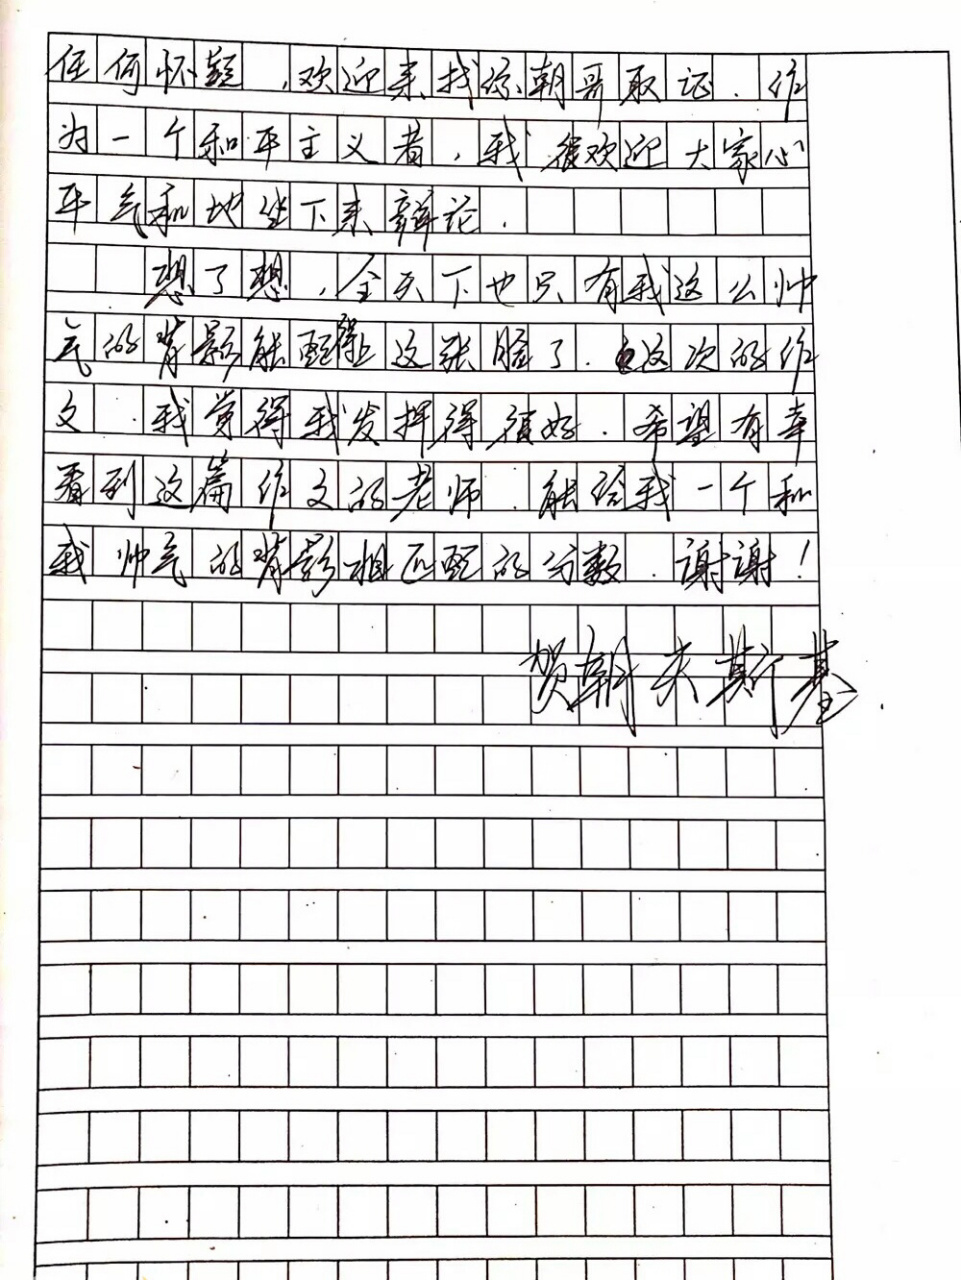 任何怀疑，欢迎来找你朝哥取证．作
为一个和平主义者，我很欢迎大家心
平气和地坐下来辩论．
想了想，全天下也只有我这么帅
气的背影能配得上这张脸了．这次的作
文．我觉得我发挥得很好．希望有幸
看到这篇作文的老师．能给我一个和
我帅气的背影相匹配的分数．谢谢！
贺朝夫斯基